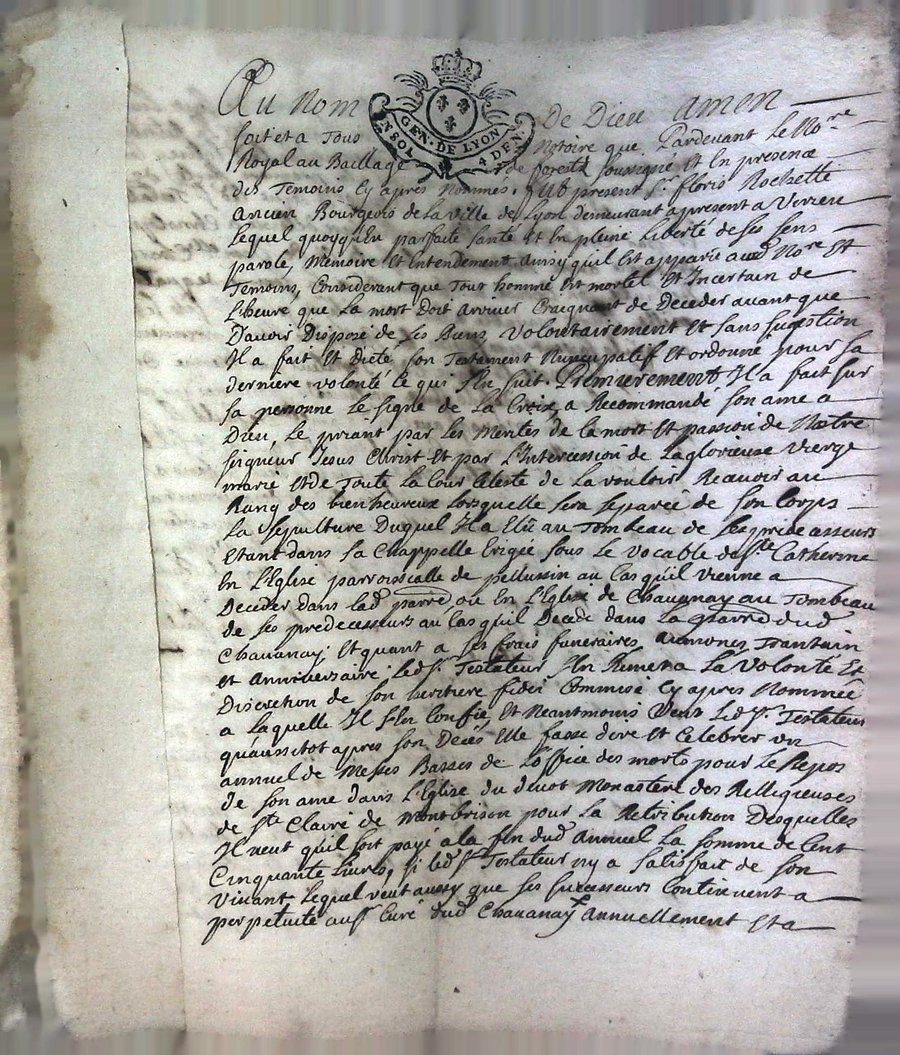 Au nom De Dieu amen
GEN. DE LYON
4 DEN.
soit et a Tous Notoire que Pardevant Le No.re
Royal au Baillage de forest soussigné et En presence
des Temoins Cy apres Nommés. fut present S.r floris Rochette
ancien Bourgeois de la ville de Lyon demeurant apresent a Verrieu
Lequel quoyqu'En parfaite santé Et En pleine Liberté de ses sens
parole, Memoire Et Entendement aussy quil Est apparu aud No.re Et
Temoins, Considerant que Tout homme Est mortel Et Incertain de
L'heure que La mort Doit arriver Craignant de Deceder avant que
D'avoir Disposé de ses Biens, Volontairement Et sans sugestion
Il a fait Et Dicté son Testament Nuncupatif Et ordonné pour sa
derniere volonté Ce qui s'En suit. Premierement Il a fait sur
sa personne Le signe de La Croix, a Recommandé son ame a
Dieu, Le priant par Les Merites de la mort Et passion de Notre
seigneur Jesus Christ Et par L'Intercession de La glorieuse Vierge
marie Et de Toute La Cour Celeste de La vouloir Recevoir au
Rang des bienheureux Lorsquelle sera separée de son Corps
La sepulture Duquel Il a Elû au Tombeau de ses predecesseurs
Etant dans sa Chappelle Erigée sous Le vocable de S.te Catherine
En L'Eglise parroissialle de pellussin au Cas quil vienne a
Deceder dans lad. parr.e ou En L'Eglise de Chavanay au Tombeau
de ses predecesseurs au Cas quil Decede dans La parr.e dud
Chavanay, Et quant a ses frais funeraires aumones, Trantain
et anniversaire Led S.r Testateur s'En Remet a La Volonté Et
Discretion de son heritiere fidei Commise Cy apres Nommée
a Laquelle Il s'En Confie, Et Neantmoins Veut Led S.r Testateur
qu'aussitot apres son Deces Elle fasse dire Et Celebrer un
annuel de Messes Basses de L'office des morts pour Le Repos
de son ame dans L'Eglise du devot Monastere des Religieuses
de S.te Claire de Montbrison pour La Retribution Desquelles
Il veut qu'il soit payé a la fin dud Annuel La somme de Cent
Cinquante Livres, si led S.r Testateur n'y a satisfait de son
Vivant, Lequel veut aussy que ses successeurs Continuent a
perpetuité au S.r Curé dud Chavanay Annuellement Et a